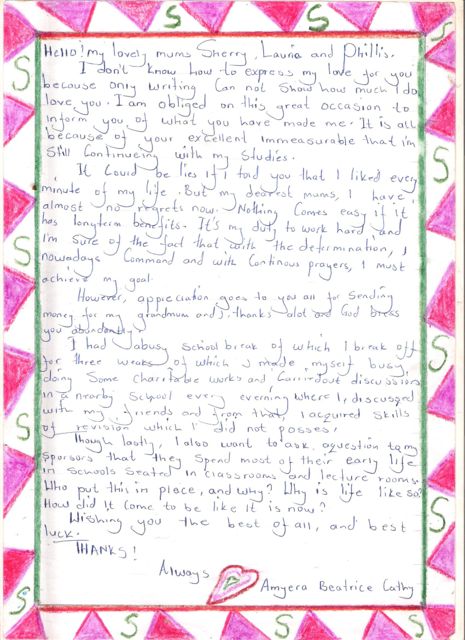 Hello! my lovely mums Sherry, Lauria and Phillis.
I don't know how to express my love for you
because only writing Can not show how much I do
love you. I am obliged on this great occasion to
inform you of what you have made me. It is all
because of your excellent immeasurable that i'm
Still Continueing with my Studies.
It Could be lies if I told you that I liked every
minute of my life. But my dearest mums, I have
almost no regrets now. Nothing Comes easy if it
has longterm benefits. It's my duty to work hard and
I'm Sure of the fact that with the determination, I
nowadays Command and with Continous prayers, I must
achieve my goal.
However, appieciation goes to you all for Sending
money for my grandmum and, thanks alot and God bless
you abundantly.
I had abusy School break of which I break off
for three weaks of which I made myself busy,
doing Some charitable works and Carriedout discussions
in a nearby School every evening where I, discussed
with my friends and from that, I acquired Skills
of revision which I did not posses.
Though lastly, I also want to ask aquestion to my
sporsors that they Spend most of their early life
in Schools Seated in classrooms and lecture rooms.
Who put this in place, and why? Why is life like so?
How did It Come to be like It is now?
Wishing you the best of all, and best
luck.
THANKS!
Always
Amyera Beatrice Cathy
S
S
S
S
S
S
S
S
S
S
S